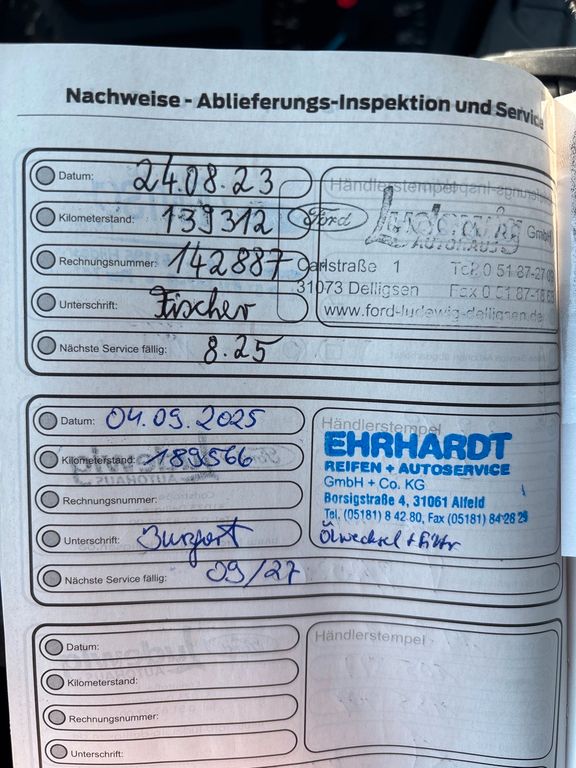 Nachweise - Ablieferungs-Inspektion und Servic
Datum: 24.08.23
Kilometerstand: 139312
Rechnungsnummer: 142887
Unterschrift: Fischer
Nächste Service fällig: 8.25
Händlerstempel
Ford Ludewig GmbH
AUTOHAUS
Carlstraße 1 Tel. 0 51 87-27
31073 Delligsen Fax 0 51 87-18
www.ford-ludewig-delligsen.de
Datum: 04.09.2025
Kilometerstand: 189566
Rechnungsnummer:
Unterschrift: Burgart
Nächste Service fällig: 09/27
Händlerstempel
EHRHARDT
REIFEN + AUTOSERVICE
GmbH + Co. KG
Borsigstraße 4, 31061 Alfeld
Tel. (05181) 8 42 80, Fax (05181) 84 28 29
Ölwechsel + Filter
Datum:
Kilometerstand:
Rechnungsnummer:
Unterschrift:
Händlerstempel